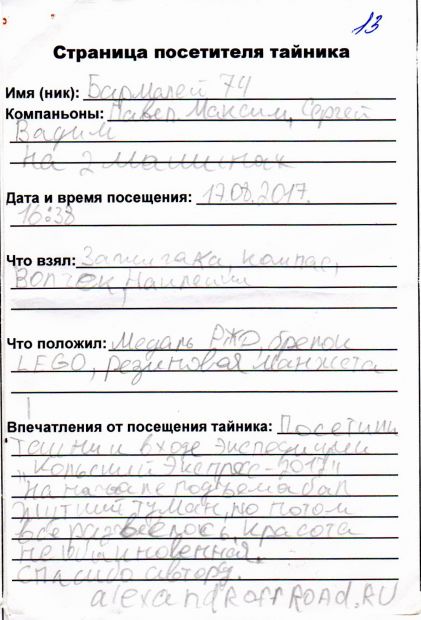 13
Страница посетителя тайника
Имя (ник): Бармалей 74
Компаньоны: Павел, Максим, Сергей
Вадим
на 2 машинах
Дата и время посещения: 17.08.2017.
16:38
Что взял: Зажигалка, компас,
волчек, наклейки
Что положил: Медаль РЖД, брелок
LEGO, резиновая манжета
Впечатления от посещения тайника: Посетили
тайник в ходе экспедиции
"Кольский Экспресс-2017"
На начале подъема был
жуткий туман, но потом
все развеялось. Красота
необыкновенная.
Спасибо автору.
alexandroffroad.RU